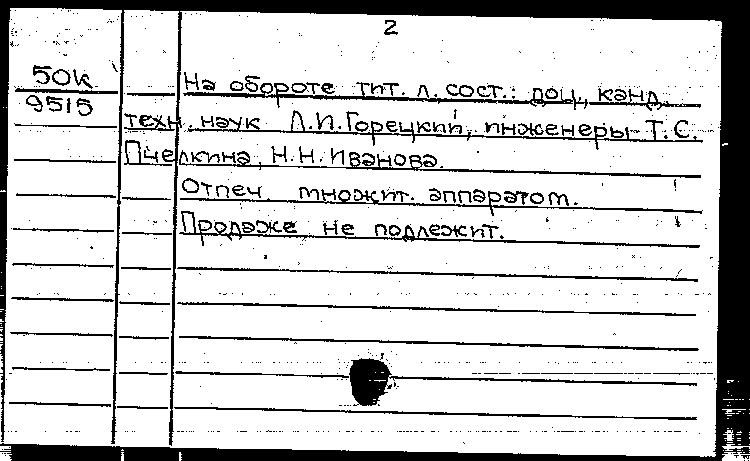 2
50к
9515
На обороте тит. л. сост.: доц., канд.
техн. наук Л.И. Горецкий, инженеры Т.С.
Пчелкина, Н.Н. Иванова.
Отпеч. множит. аппаратом.
Продаже не подлежит.